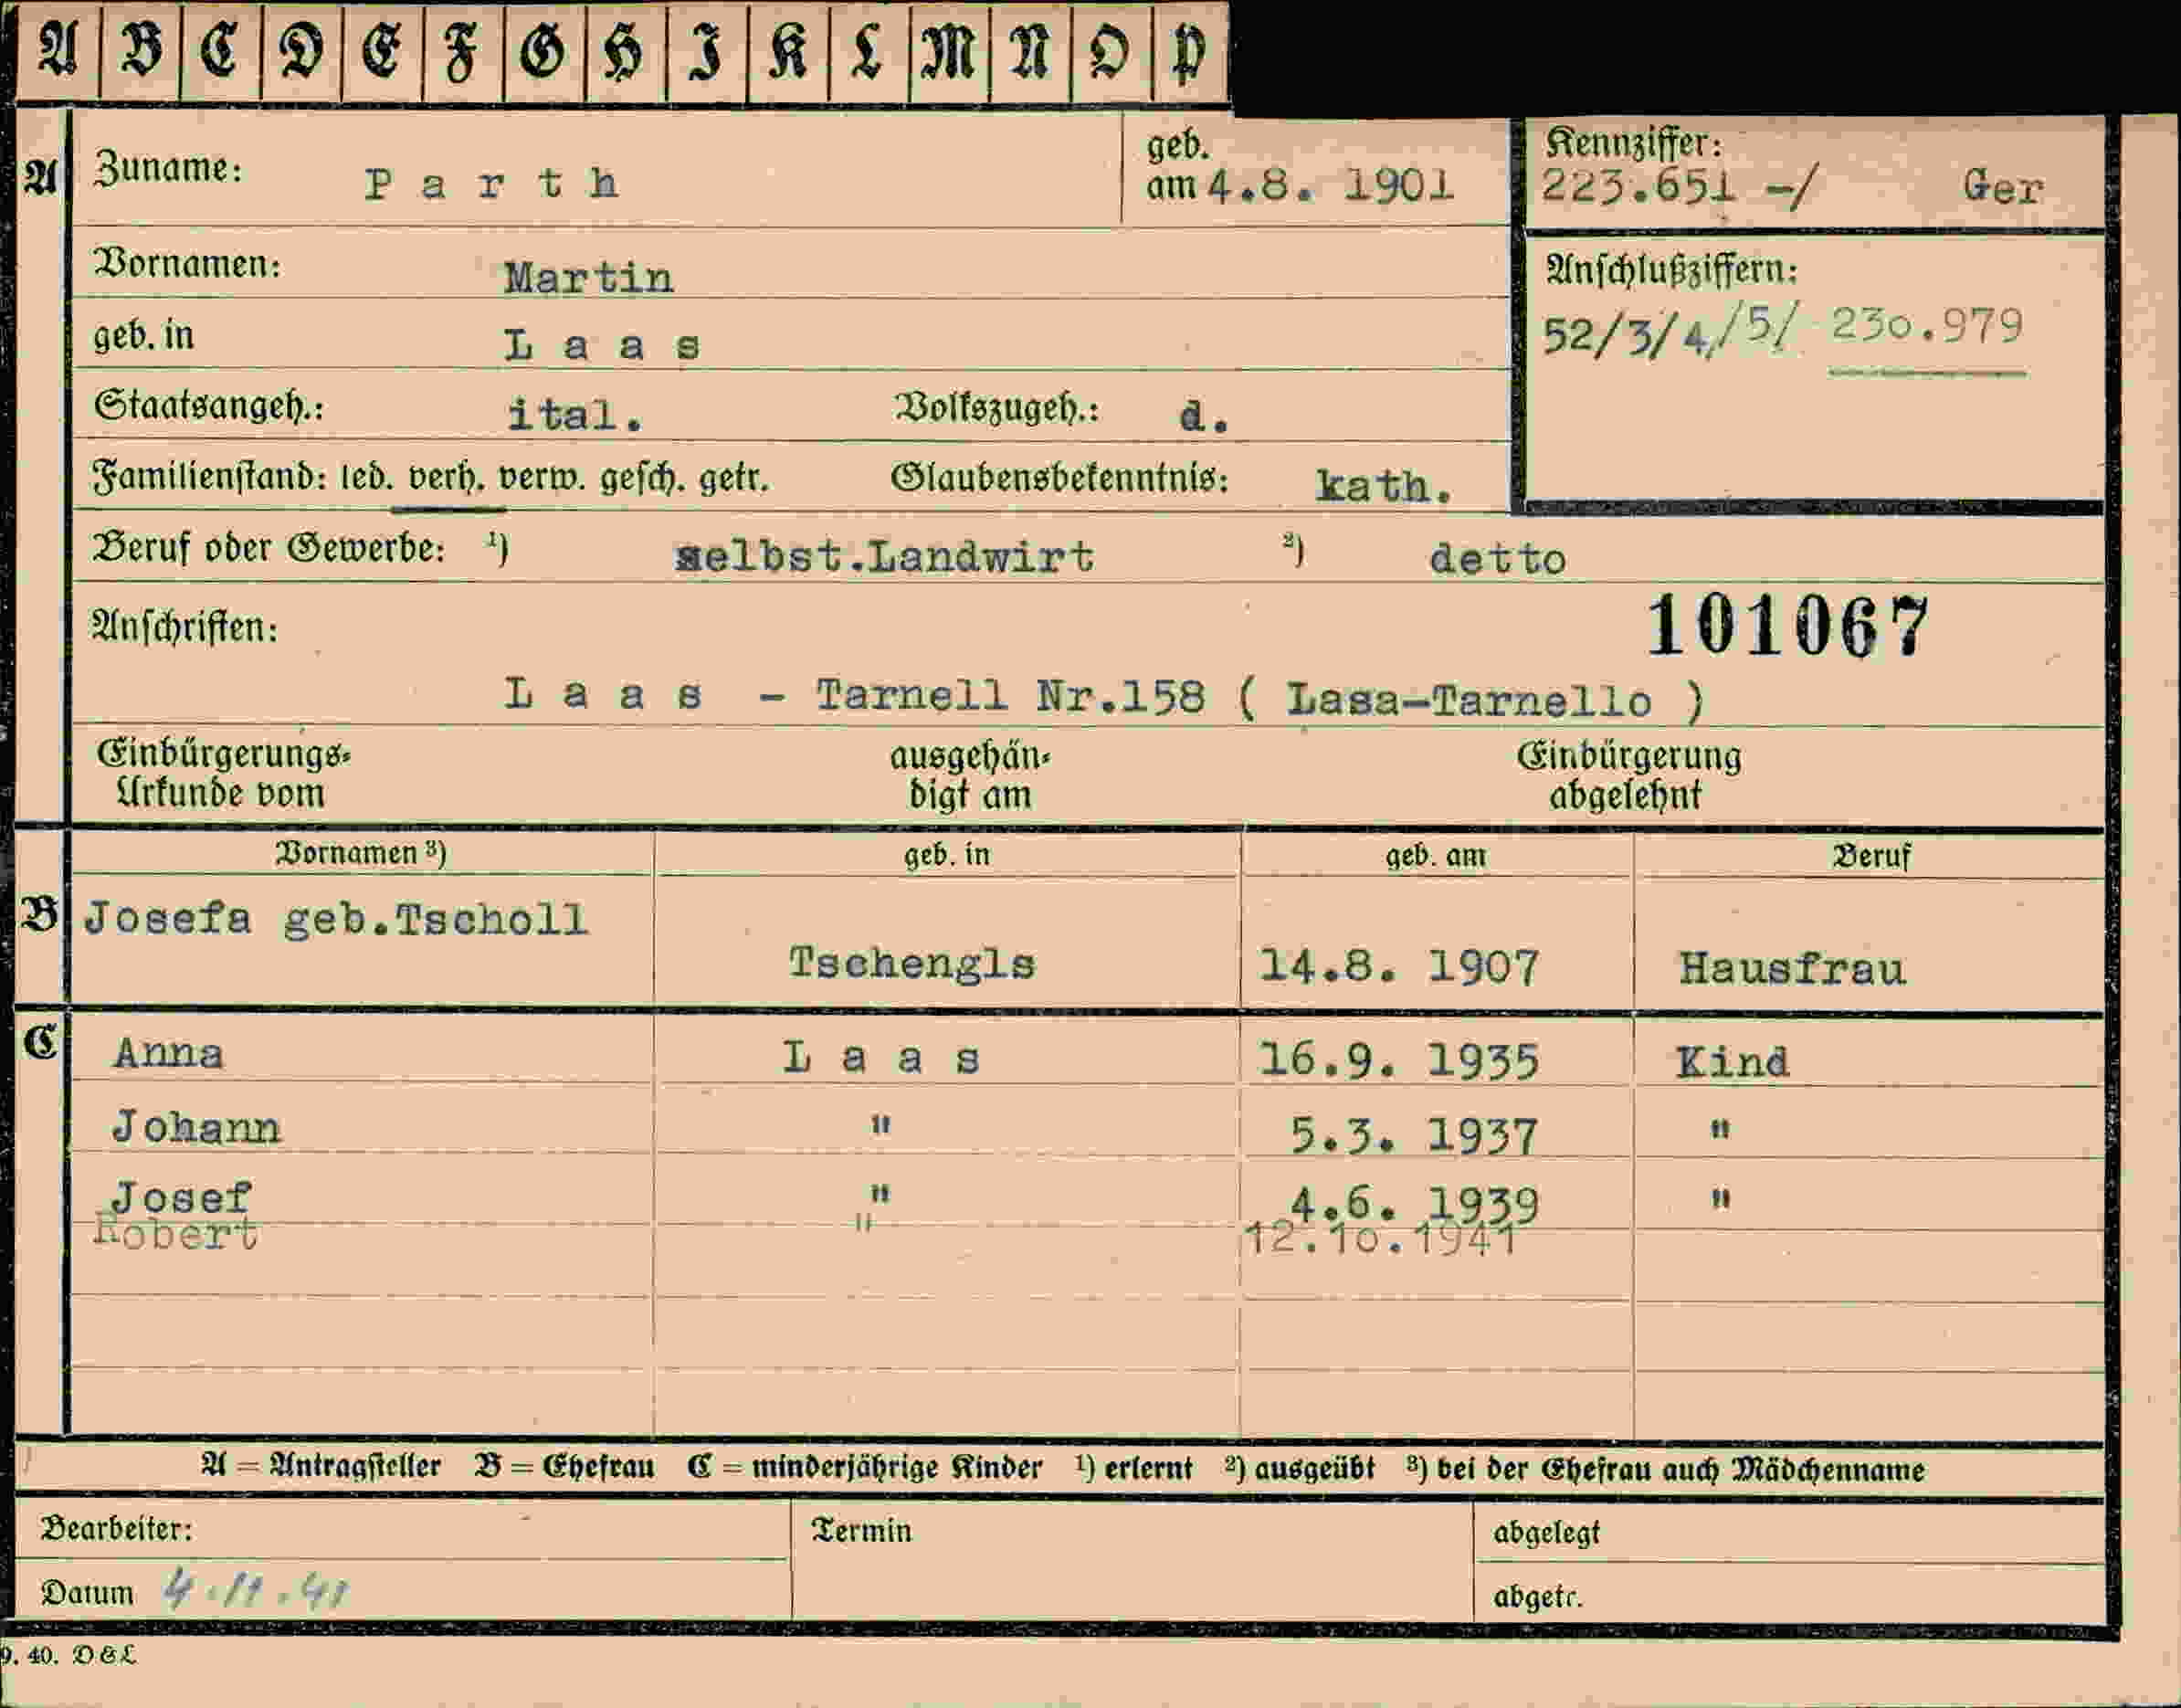 A B C D E F G H I K L M N O P
A Zuname: Parth geb. am 4.8. 1901 Kennziffer: 223.651 -/ Ger
Vornamen: Martin Anschlußziffern:
geb. in Laas 52/3/4,/5/ 230.979
Staatsangeh.: ital. Volkszugeh.: d.
Familienstand: led. verh. verw. gesch. getr. Glaubensbekenntnis: kath.
Beruf oder Gewerbe: ¹) selbst.Landwirt ²) detto
Anschriften: 101067
Laas - Tarnell Nr.158 ( Lasa-Tarnello )
Einbürgerungs- ausgehän- Einbürgerung
Urkunde vom digt am abgelehnt
Vornamen ³) geb. in geb. am Beruf
B Josefa geb.Tscholl
Tschengls 14.8. 1907 Hausfrau
C Anna Laas 16.9. 1935 Kind
Johann " 5.3. 1937 "
Josef " 4.6. 1939 "
Robert " 12.10.1941
A = Antragsteller B = Ehefrau C = minderjährige Kinder ¹) erlernt ²) ausgeübt ³) bei der Ehefrau auch Mädchenname
Bearbeiter: Termin abgelegt
Datum 4.11.41 abgetr.
9. 40. D & L